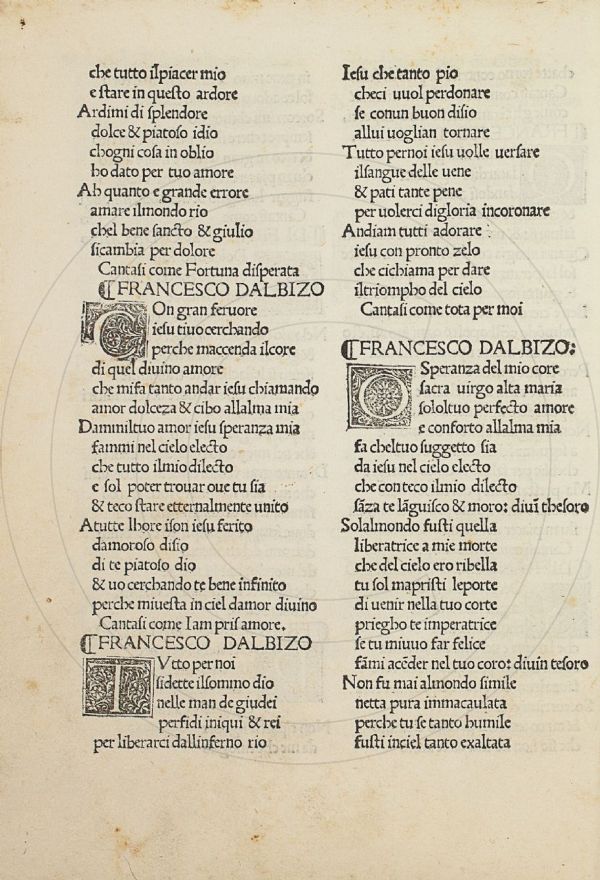 che tutto ilpiacer mio
e stare in questo ardore
Ardimi di splendore
dolce & piatoso idio
chogni cosa in oblio
ho dato per tuo amore
Ah quanto e grande errore
amare ilmondo rio
chel bene sancto & giulio
sicambia per dolore
Cantasi come Fortuna disperata
⁋FRANCESCO DALBIZO
COn gran feruore
iesu tiuo cerchando
perche maccenda ilcore
di quel diuino amore
che mifa tanto andar iesu chiamando
amor dolceza & cibo allalma mia
Dammiltuo amor iesu speranza mia
fammi nel cielo electo
che tutto ilmio dilecto
e sol poter trouar oue tu sia
& teco stare etternalmente unito
Atutte lhore ison iesu ferito
damoroso disio
di te piatoso dio
& uo cerchando te bene infinito
perche miuesta in ciel damor diuino
Cantasi come Iam pris amore.
⁋FRANCESCO DALBIZO
TVtto per noi
sidette ilsommo dio
nelle man de giudei
perfidi iniqui & rei
per liberarci dallinferno rio
Iesu che tanto pio
checi uuol perdonare
se conun buon disio
allui uoglian tornare
Tutto pernoi iesu uolle uersare
ilsangue delle uene
& pati tante pene
per uolerci digloria incoronare
Andiam tutti adorare
iesu con pronto zelo
che cichiama per dare
iltriompho del cielo
Cantasi come tota per moi
⁋FRANCESCO DALBIZO:
O Speranza del mio core
sacra uirgo alta maria
sololtuo perfecto amore
e conforto allalma mia
fa cheltuo suggetto sia
da iesu nel cielo electo
che con teco ilmio dilecto
sãza te lãguisco & moro: diuĩ thesoro
Solalmondo fusti quella
liberatrice a mie morte
che del cielo ero ribella
tu sol mapristi leporte
di uenir nella tuo corte
priegho te imperatrice
se tu miuuo far felice
fãmi accẽder nel tuo coro: diuin tesoro
Non fu mai almondo simile
netta pura immacaulata
perche tu se tanto humile
fusti inciel tanto exaltata